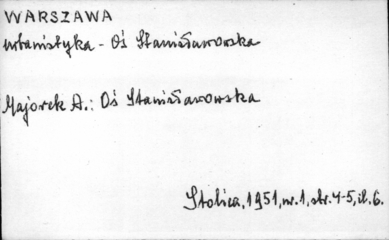 WARSZAWA
urbanistyka - Oś Stanisławowska
Majorek A.: Oś Stanisławowska
Stolica, 1951, nr. 1, str. 4-5, il. 6.